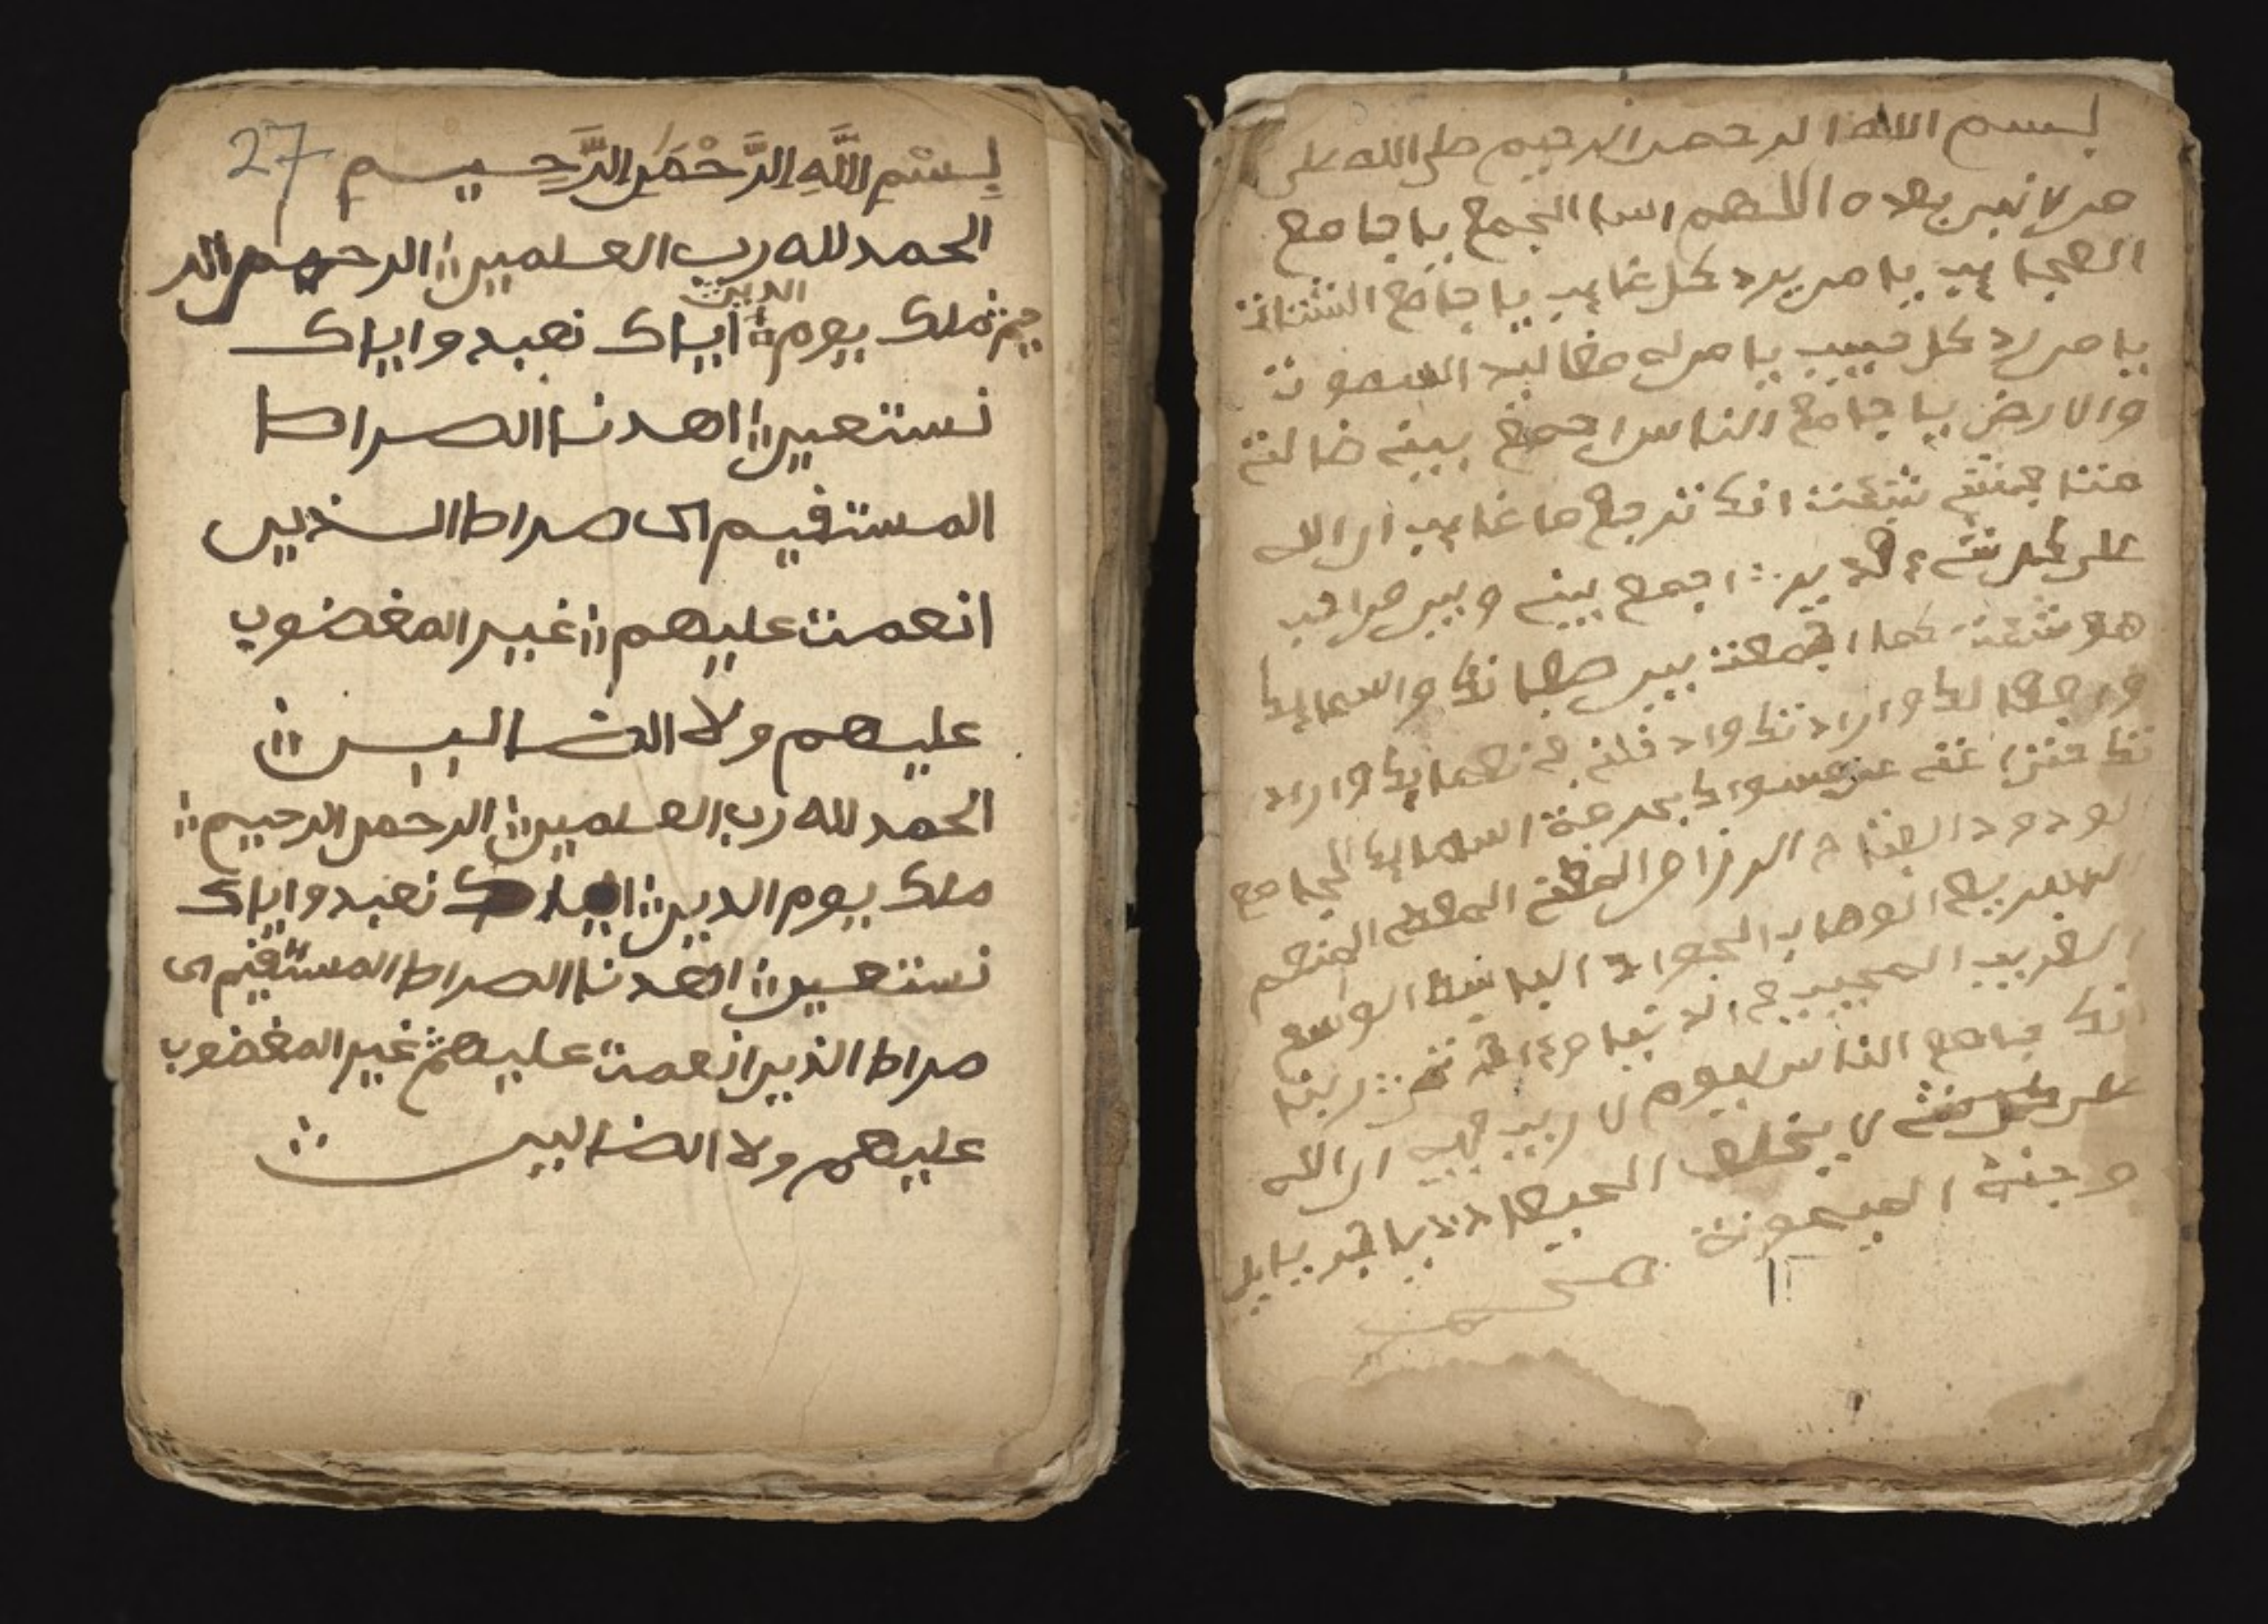 بسم الله الرحمن الرحيم صلى الله على
من لا نبي بعده اللهم الجمع يا جامع
العجايب يا من يرد كل غايب يا جامع الشتات
يا من رد كل حبيب يا من له مقاليد السموت
والارض يا جامع الناس اجمع بيني ضالت
شئت انك ترجع ما غايب ان الله
على كل شيء قدير اجمع بيني وبين
هو شئت كما اجمعت بين صفاتك واسمايك
وارادتك وادخلني في نعمايك واراد
تك عن سواك بحرمة اسمايك الجامع
الودود الفتاح الرزاق المغني المعطي المنعم
البديع الوهاب الجواد الباسط الوسع
القريب المجيب ربنا
انك جامع الناس ليوم لا ريب فيه ان الله
على كل شيء لا يخلف الميعاد
الميمونة
27 بِسْمِ اللَّهِ الرَّحْمَنِ الرَّحِيمِ
الحمد لله رب العلمين الرحمن الر
حيم ملك يوم الدين اياك نعبد واياك
نستعين اهدنا الصراط
المستقيم الى صراط الذين
انعمت عليهم غير المغضوب
عليهم ولا الضالين
الحمد لله رب العلمين الرحمن الرحيم
ملك يوم الدين اياك نعبد واياك
نستعين اهدنا الصراط المستقيم الى
صراط الذين انعمت عليهم غير المغضوب
عليهم ولا الضالين